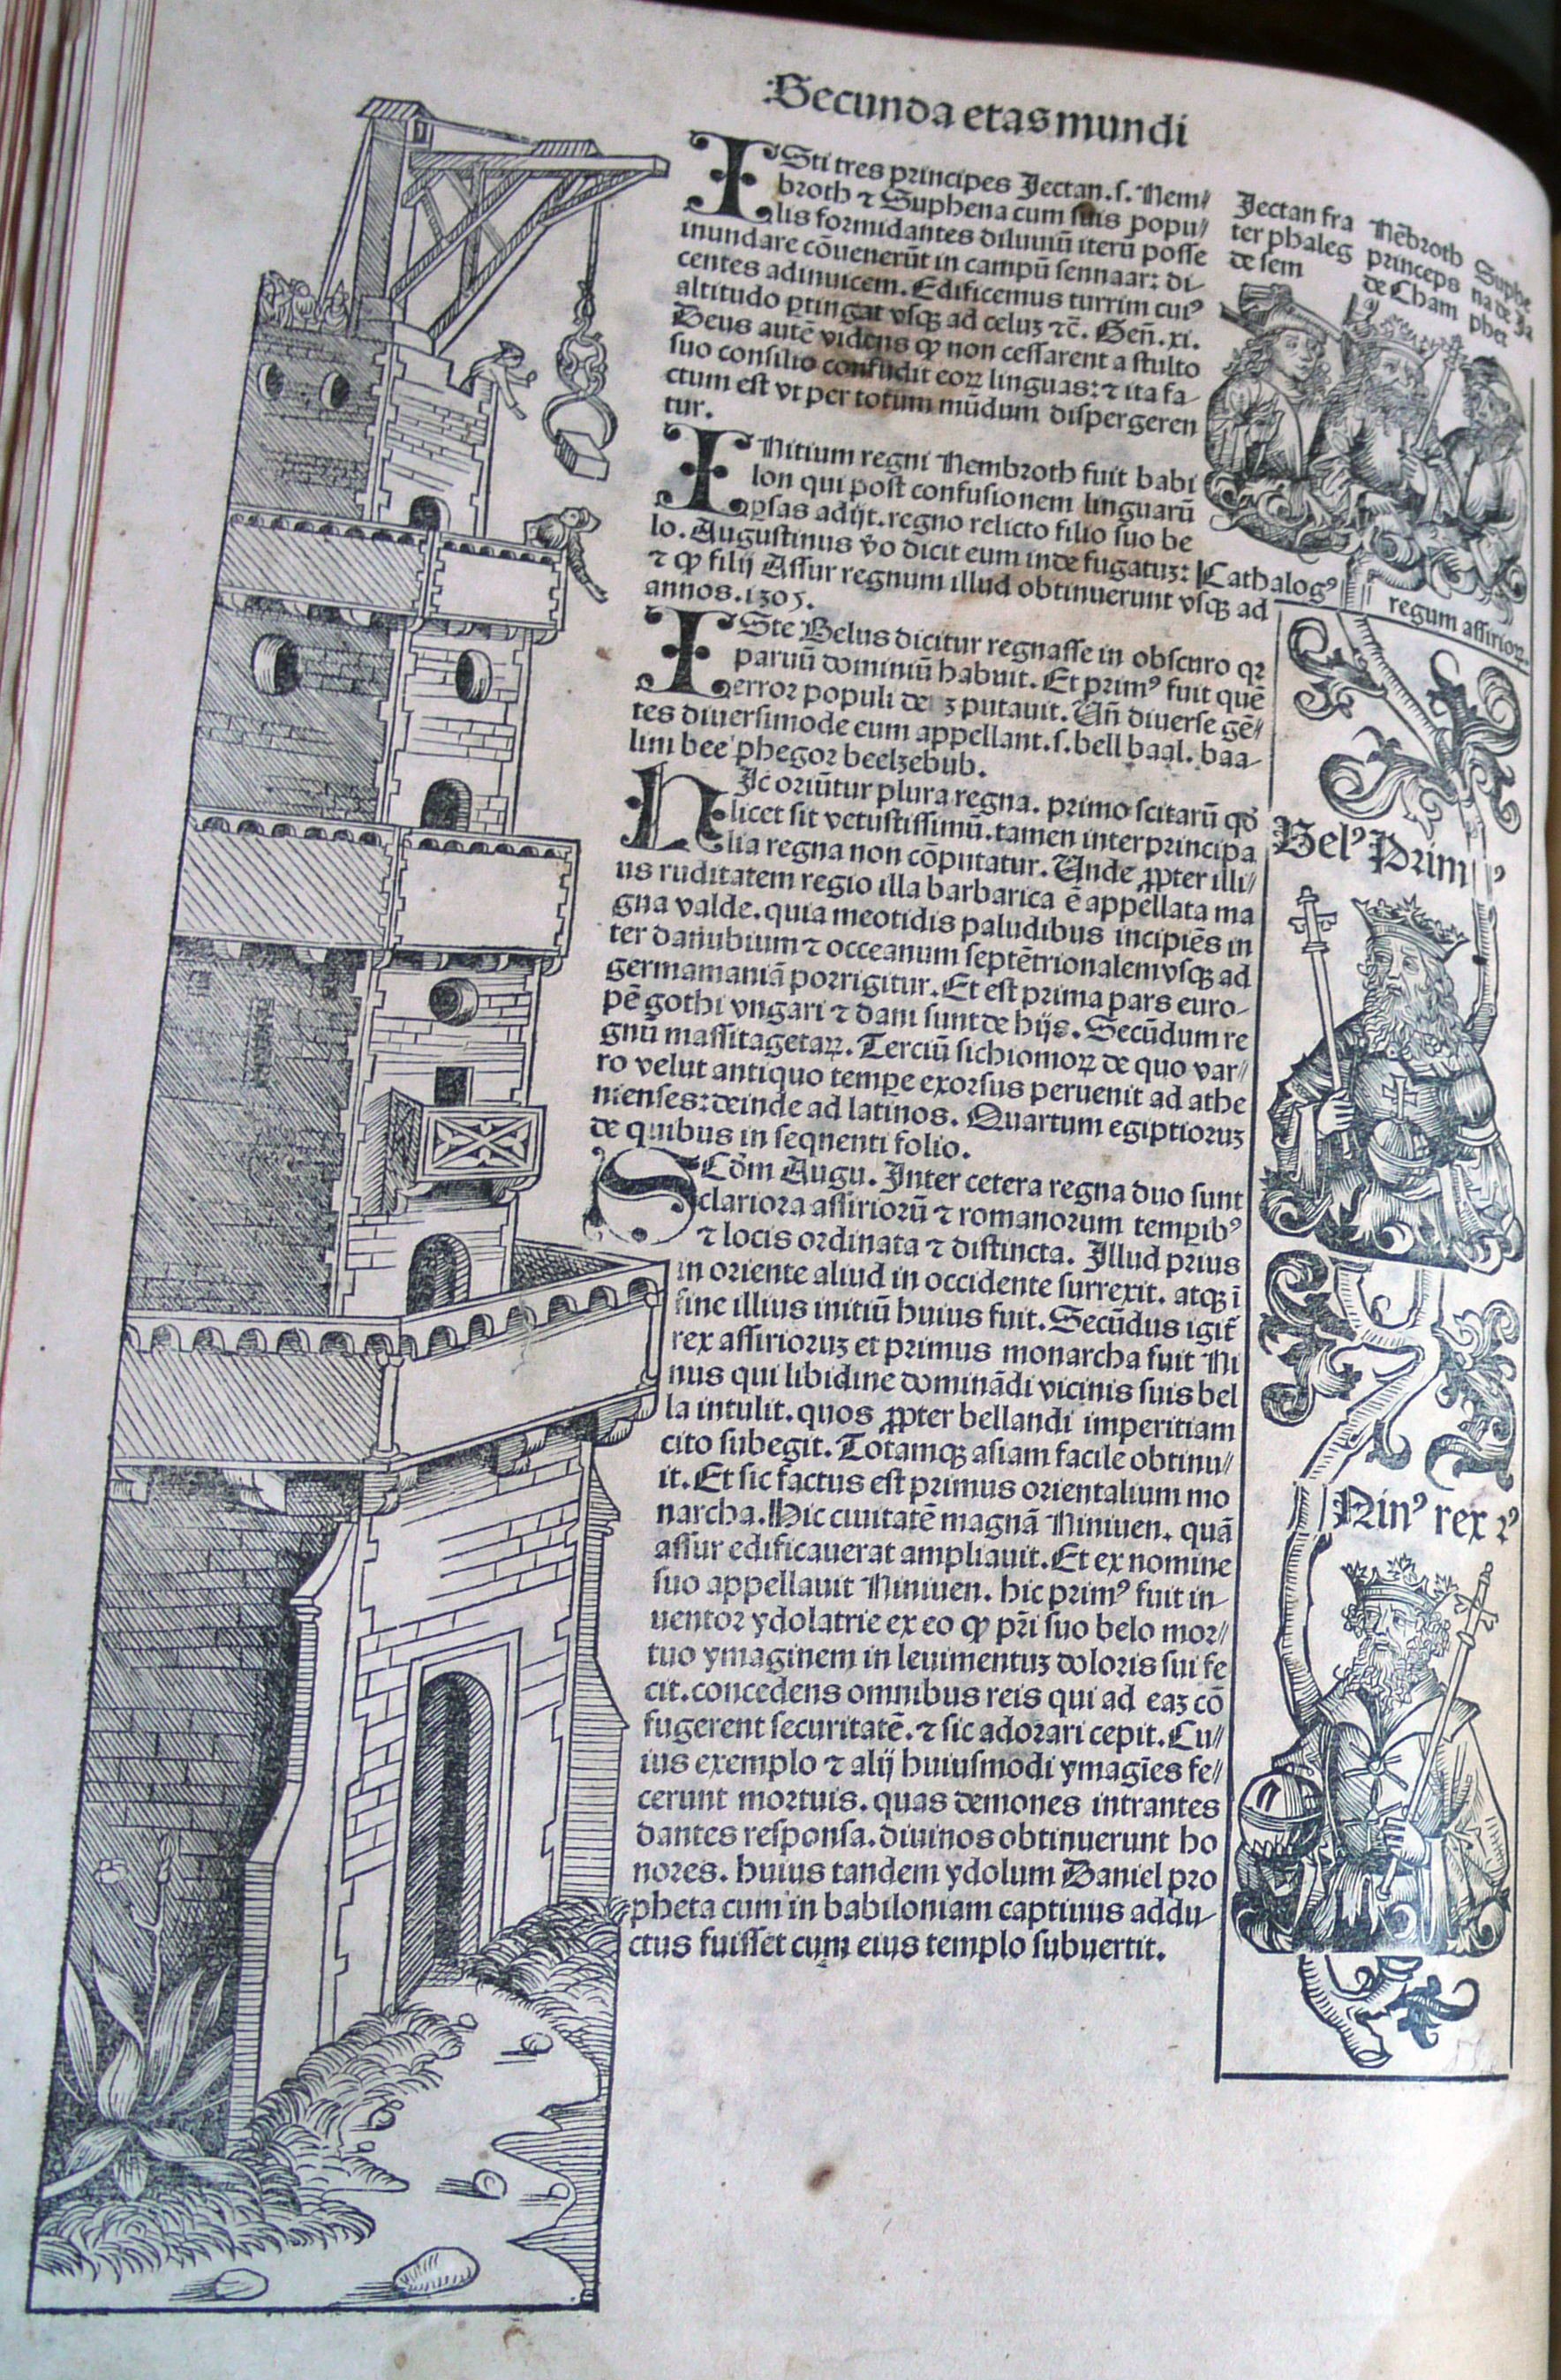 Secunda etas mundi
ISti tres principes Jectan.s. Nem⸗
broth ⁊ Suphena cum suis popu⸗
lis formidantes diluuiū iterū posse
inundare cōuenerūt in campū sennaar: di-
centes adinuicem. Edificemus turrim cuiꝰ
altitudo ꝑtingat vsqꝫ ad celuꝫ ⁊c̄. Geñ.xi.
Deus autē videns ꝙ non cessarent a stulto
suo consilio confudit eoꝝ linguas: ⁊ ita fa-
ctum est vt per totum mūdum dispergeren
tur.
INitium regni Nembroth fuit babi
lon qui post confusionem linguarū
ꝑsas adijt. regno relicto filio suo be
lo. Augustinus v̄o dicit eum inde fugatuꝫ:
⁊ ꝙ filij Assur regnum illud obtinuerunt vsqꝫ ad
annos.1305.
ISte Belus dicitur regnasse in obscuro qꝛ
paruū dominiū habuit. Et primꝰ fuit quē
error populi de ꝫ putauit. Vñ diuerse gē⸗
tes diuersimode eum appellant.s. bell baal. baa-
lim bee phegor beelzebub.
HIc oriūtur plura regna. primo scitarū qđ
licet sit vetustissimū. tamen inter principa
lia regna non cōputatur. Unde ꝓpter illi⸗
us ruditatem regio illa barbarica ē appellata ma
gna valde. quia meotidis paludibus incipiēs in
ter danubium ⁊ occeanum septētrionalem vsqꝫ ad
germamaniā porrigitur. Et est prima pars euro-
pē gothi vngari ⁊ dani sunt de hijs. Secūdum re
gnū massitagetaꝝ. Terciū sichiomoꝝ de quo var⸗
ro velut antiquo tempe exorsus peruenit ad athe
nienses: deinde ad latinos. Quartum egiptioruꝫ
de quibus in seqnenti folio.
SCđm Augu. Inter cetera regna duo sunt
clariora assiriorū ⁊ romanorum tempibꝰ
⁊ locis ordinata ⁊ distincta. Illud prius
in oriente aliud in occidente surrexit. atqꝫ ī
fine illius initiū huius fuit. Secūdus igit̄
rex assirioruꝫ et primus monarcha fuit Ni
nus qui libidine domināđi vicinis suis bel
la intulit. quos ꝓpter bellandi imperitiam
cito subegit. Totamqꝫ asiam facile obtinu⸗
it. Et sic factus est primus orientalium mo
narcha. Hic ciuitatē magnā Niniuen. quā
assur edificauerat ampliauit. Et ex nomine
suo appellauit Niniuen. hic primꝰ fuit in-
uentor ydolatrie ex eo ꝙ p̄ri suo belo mor⸗
tuo ymaginem in leuimentuꝫ doloris sui fe
cit. concedens omnibus reis qui ad eaꝫ cō
fugerent securitatē. ⁊ sic adorari cepit. Cu⸗
ius exemplo ⁊ alij huiusmodi ymagīes fe⸗
cerunt mortuis. quas demones intrantes
dantes responsa. diuinos obtinuerunt ho
nores. huius tandem ydolum Daniel pro
pheta cum in babiloniam captiuus addu-
ctus fuisset cum eius templo subuertit.
Jectan fra
ter phaleg
de sem
Nēbroth
princeps
de Cham
Suphe
na de Ja
phet
Cathalogꝰ
regum assirioꝝ.
Belꝰ Primꝰ
Ninꝰ rex 2ꝰ